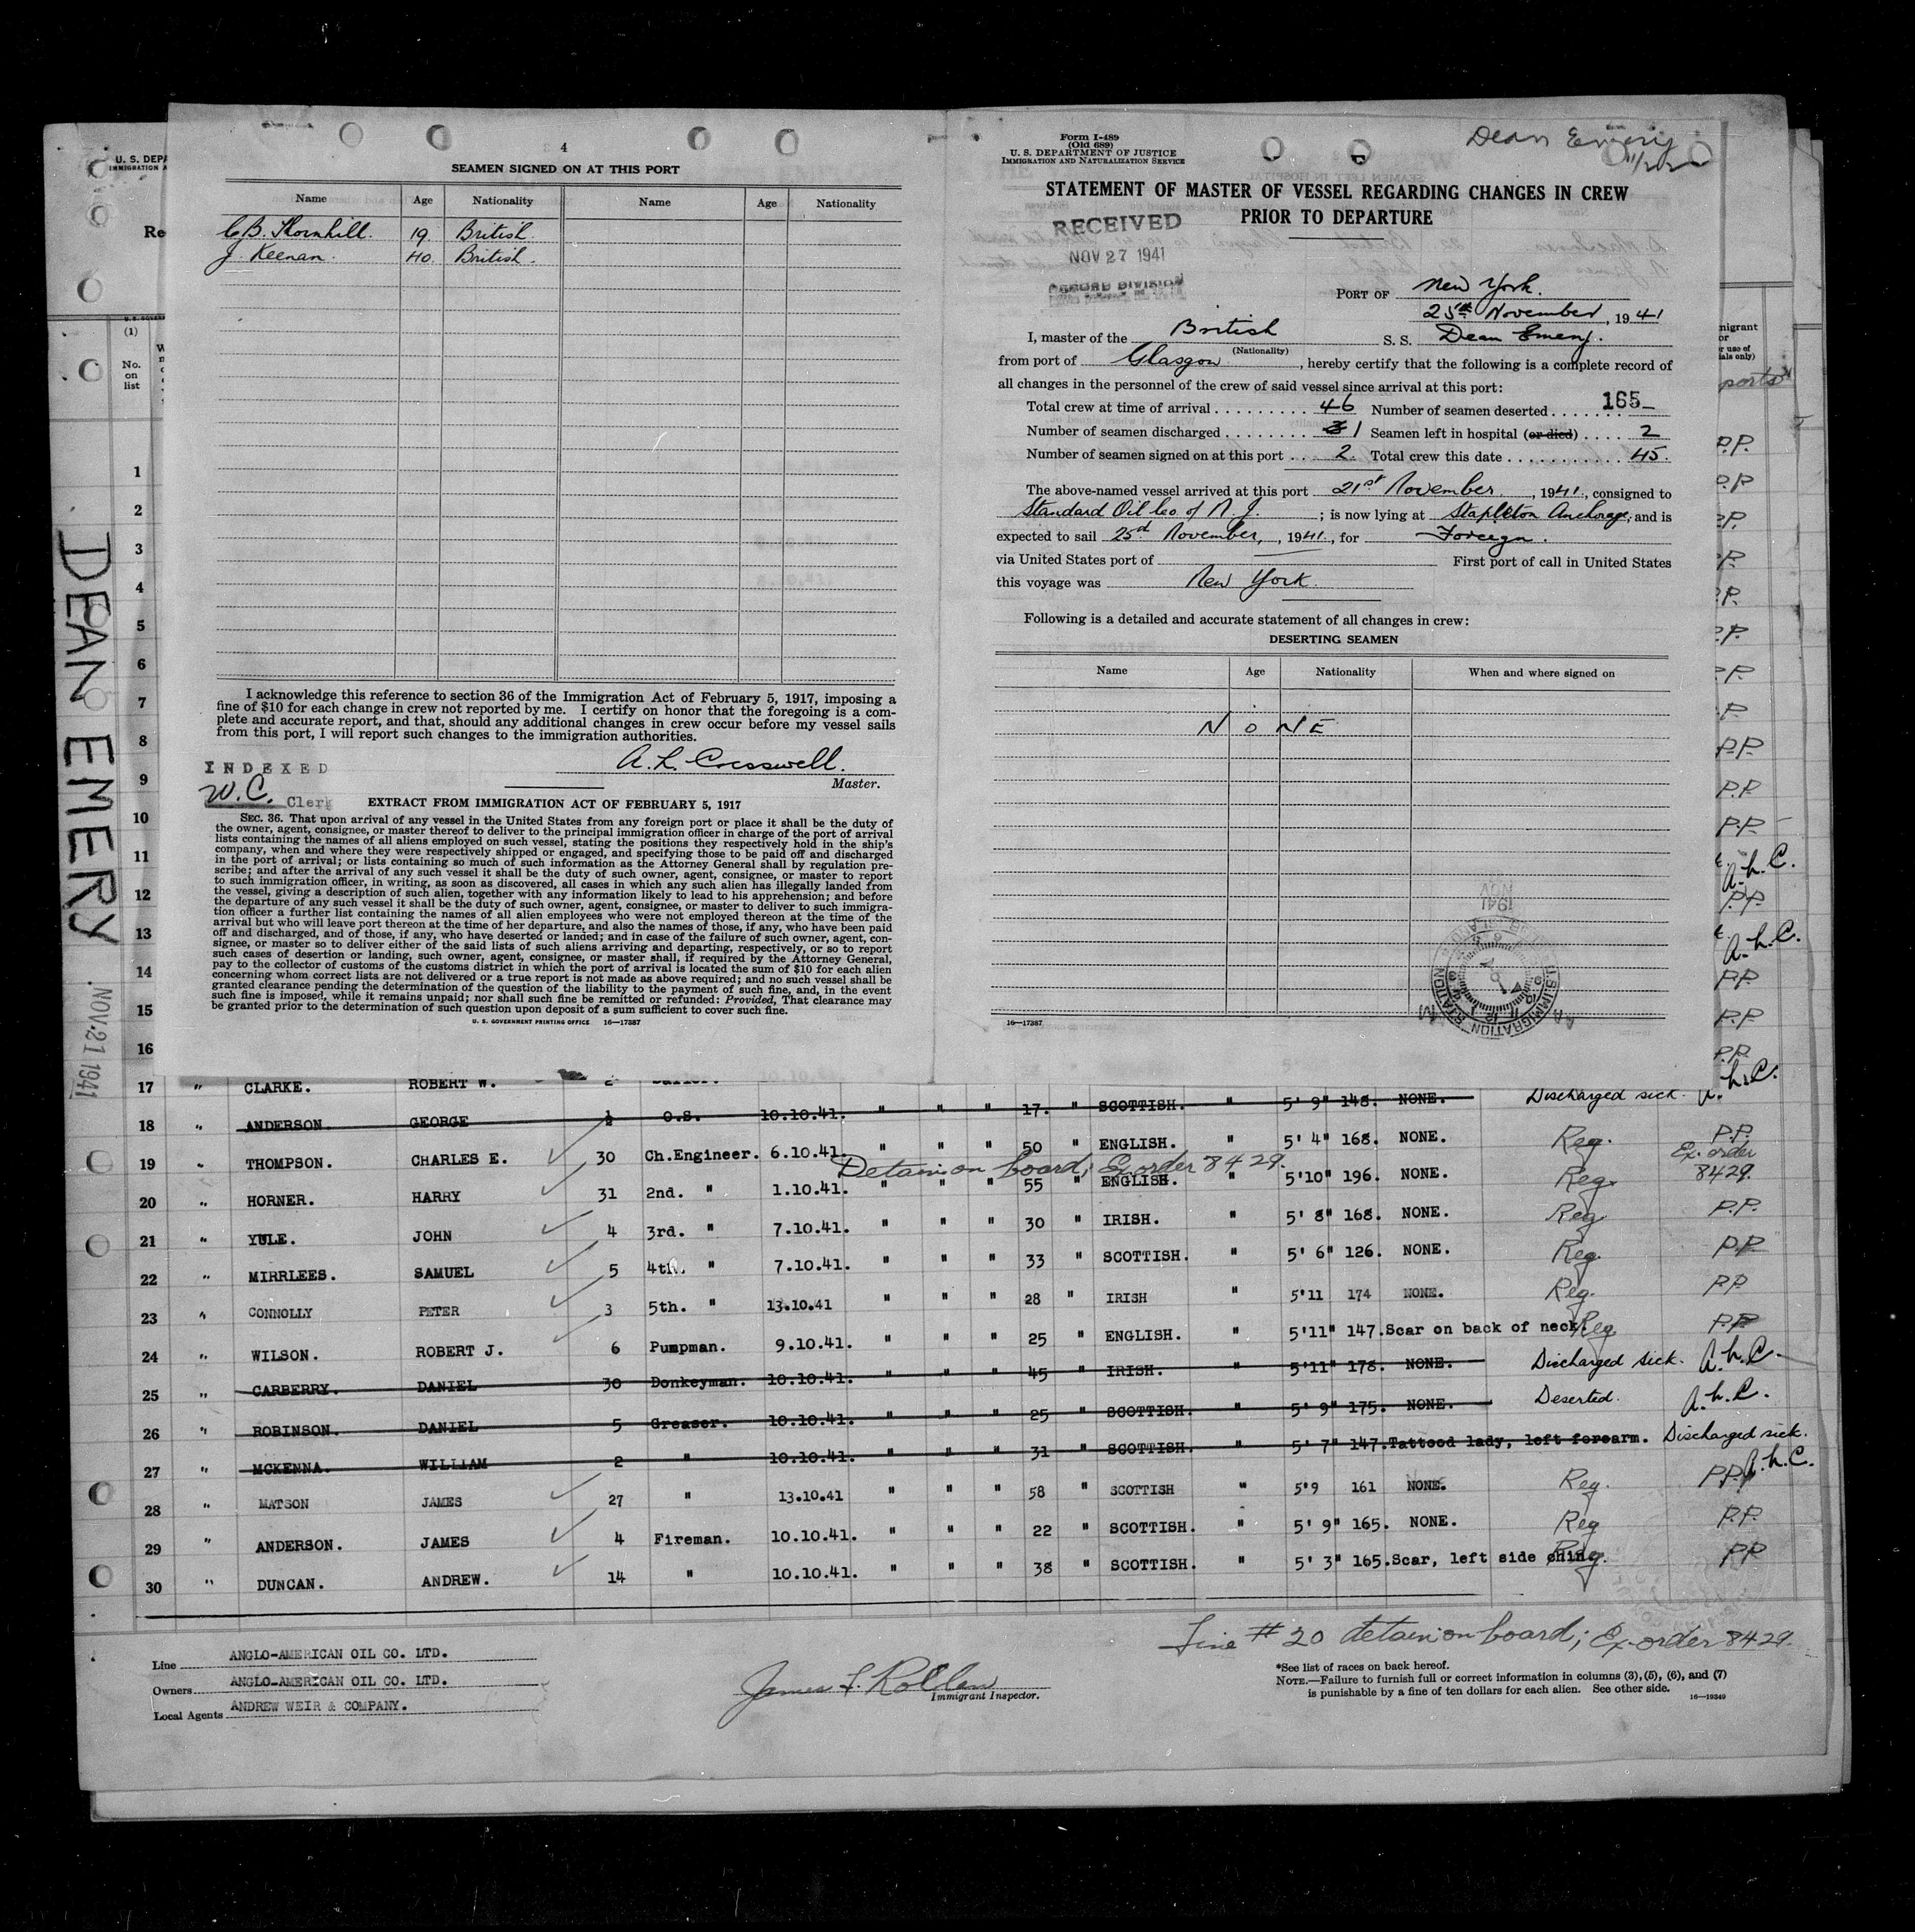 4
SEAMEN SIGNED ON AT THIS PORT
Name Age Nationality Name Age Nationality
C B. Thornhill. 19. British.
J. Keenan. 40. British.
I acknowledge this reference to section 36 of the Immigration Act of February 5, 1917, imposing a
fine of $10 for each change in crew not reported by me. I certify on honor that the foregoing is a com-
plete and accurate report, and that, should any additional changes in crew occur before my vessel sails
from this port, I will report such changes to the immigration authorities.
A. L. Cresswell.
Master.
INDEXED
W.C. Clerk
EXTRACT FROM IMMIGRATION ACT OF FEBRUARY 5, 1917
SEC. 36. That upon arrival of any vessel in the United States from any foreign port or place it shall be the duty of
the owner, agent, consignee, or master thereof to deliver to the principal immigration officer in charge of the port of arrival
lists containing the names of all aliens employed on such vessel, stating the positions they respectively hold in the ship's
company, when and where they were respectively shipped or engaged, and specifying those to be paid off and discharged
in the port of arrival; or lists containing so much of such information as the Attorney General shall by regulation pre-
scribe; and after the arrival of any such vessel it shall be the duty of such owner, agent, consignee, or master to report
to such immigration officer, in writing, as soon as discovered, all cases in which any such alien has illegally landed from
the vessel, giving a description of such alien, together with any information likely to lead to his apprehension; and before
the departure of any such vessel it shall be the duty of such owner, agent, consignee, or master to deliver to such immigra-
tion officer a further list containing the names of all alien employees who were not employed thereon at the time of the
arrival but who will leave port thereon at the time of her departure, and also the names of those, if any, who have been paid
off and discharged, and of those, if any, who have deserted or landed; and in case of the failure of such owner, agent, con-
signee, or master so to deliver either of the said lists of such aliens arriving and departing, respectively, or so to report
such cases of desertion or landing, such owner, agent, consignee, or master shall, if required by the Attorney General,
pay to the collector of customs of the customs district in which the port of arrival is located the sum of $10 for each alien
concerning whom correct lists are not delivered or a true report is not made as above required; and no such vessel shall be
granted clearance pending the determination of the question of the liability to the payment of such fine, and, in the event
such fine is imposed, while it remains unpaid; nor shall such fine be remitted or refunded: Provided, That clearance may
be granted prior to the determination of such question upon deposit of a sum sufficient to cover such fine.
U. S. GOVERNMENT PRINTING OFFICE 16—17387
Form I-489
(Old 689)
U. S. DEPARTMENT OF JUSTICE
IMMIGRATION AND NATURALIZATION SERVICE
Dean Emery
STATEMENT OF MASTER OF VESSEL REGARDING CHANGES IN CREW
PRIOR TO DEPARTURE
RECEIVED
NOV 27 1941
RECORD DIVISION
PORT OF New York.
25th November, 1941
I, master of the British S. S. Dean Emery.
(Nationality)
from port of Glasgow, hereby certify that the following is a complete record of
all changes in the personnel of the crew of said vessel since arrival at this port:
Total crew at time of arrival 46 Number of seamen deserted 165
Number of seamen discharged 1 Seamen left in hospital (or died) 2
Number of seamen signed on at this port 2. Total crew this date 45.
The above-named vessel arrived at this port 21st November, 1941, consigned to
Standard Oil Co. of N. J. ; is now lying at Stapleton Anchorage, and is
expected to sail 25th November, 1941, for Foreign.
via United States port of First port of call in United States
this voyage was New York.
Following is a detailed and accurate statement of all changes in crew:
DESERTING SEAMEN
Name Age Nationality When and where signed on
NONE
16—17387
U. S. DEPA
IMMIGRATION A
Re
(1)
No.
on
list
DEAN EMERY
NOV. 21 1941
1
2
3
4
5
6
7
8
9
10
11
12
13
14
15
16
17 " CLARKE. ROBERT W.
18 " ANDERSON GEORGE O.S. 10.10.41. " " " 17. " SCOTTISH. " 5' 9" 148. NONE. Discharged sick.
19 " THOMPSON. CHARLES E. 30 Ch.Engineer. 6.10.41. " " " 50 " ENGLISH. " 5' 4" 168. NONE. Reg. P.P.
Detain on board; Ex order 8429.
20 " HORNER. HARRY 31 2nd. " 1.10.41. " " " 55 " ENGLISH. " 5'10" 196. NONE. Reg. Ex. order 8429.
21 " YULE. JOHN 4 3rd. " 7.10.41. " " " 30 " IRISH. " 5' 8" 168. NONE. Reg P.P.
22 " MIRRLEES. SAMUEL 5 4th. " 7.10.41. " " " 33 " SCOTTISH. " 5' 6" 126. NONE. Reg. PP
23 " CONNOLLY PETER 3 5th. " 13.10.41 " " " 28 " IRISH " 5'11 174 NONE. Reg. PP
24 " WILSON. ROBERT J. 6 Pumpman. 9.10.41. " " " 25 " ENGLISH. " 5'11" 147. Scar on back of neck. Reg PP
25 " CARBERRY. DANIEL 30 Donkeyman. 10.10.41. " " " 45 " IRISH. " 5'11" 178. NONE. Discharged sick. A.L.C.
26 " ROBINSON. DANIEL 5 Greaser. 10.10.41. " " " 25 " SCOTTISH. " 5' 9" 175. NONE. Deserted. A.L.C.
27 " MCKENNA. WILLIAM 2 " 10.10.41. " " " 31 " SCOTTISH. " 5' 7" 147. Tattooed lady, left forearm. Discharged sick. A.L.C.
28 " MATSON JAMES 27 " 13.10.41 " " " 58 " SCOTTISH " 5'9 161 NONE. Reg. PP
29 " ANDERSON. JAMES 4 Fireman. 10.10.41. " " " 22 " SCOTTISH. " 5' 9" 165. NONE. Reg P.P.
30 " DUNCAN. ANDREW. 14 " 10.10.41. " " " 38 " SCOTTISH. " 5' 3" 165. Scar, left side chin. Reg. PP
Line # 20 detain on board; Ex-order 8429.
Line ANGLO-AMERICAN OIL CO. LTD.
Owners ANGLO-AMERICAN OIL CO. LTD.
Local Agents ANDREW WEIR & COMPANY.
Immigrant Inspector.
*See list of races on back hereof.
NOTE.—Failure to furnish full or correct information in columns (3), (5), (6), and (7)
is punishable by a fine of ten dollars for each alien. See other side.
16—19349